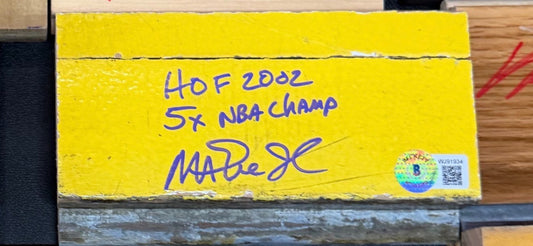 HOF 2002
5x NBA Champ
BECKETT
B
WJ91934